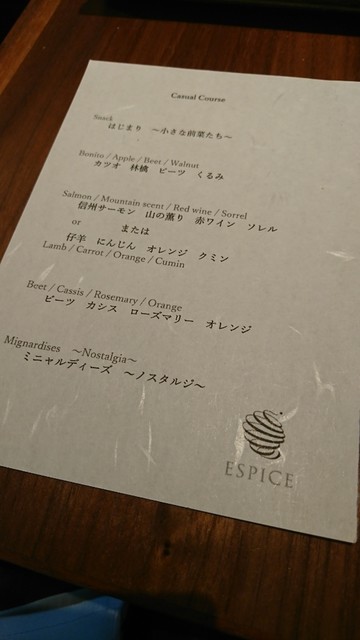 Casual Course
Snack
はじまり ～小さな前菜たち～
Bonito / Apple / Beet / Walnut
カツオ 林檎 ビーツ くるみ
Salmon / Mountain scent / Red wine / Sorrel
信州サーモン 山の薫り 赤ワイン ソレル
or または
仔羊 にんじん オレンジ クミン
Lamb / Carrot / Orange / Cumin
Beet / Cassis / Rosemary / Orange
ビーツ カシス ローズマリー オレンジ
Mignardises ～Nostalgia～
ミニャルディーズ ～ノスタルジ～
ESPICE